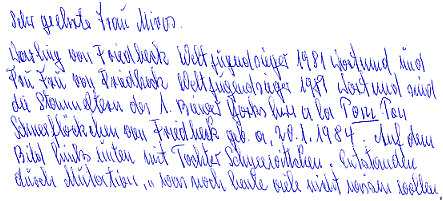 Sehr geehrte Frau Mirus.
Darling von Friedheck Weltjugendsieger 1981 Dortmund und
Frou Frou von Friedheck Weltjugendsieger 1981 Dortmund sind
die Stammeltern des 1. Biewer Yorkshire a la Pom Pon
Schneeflöckchen von Friedheck geb. a, 20.1.1984. Auf dem
Bild links unten mit Tochter Schneewittchen. Entstanden
durch Mutation, was noch heute viele nicht wissen wollen.